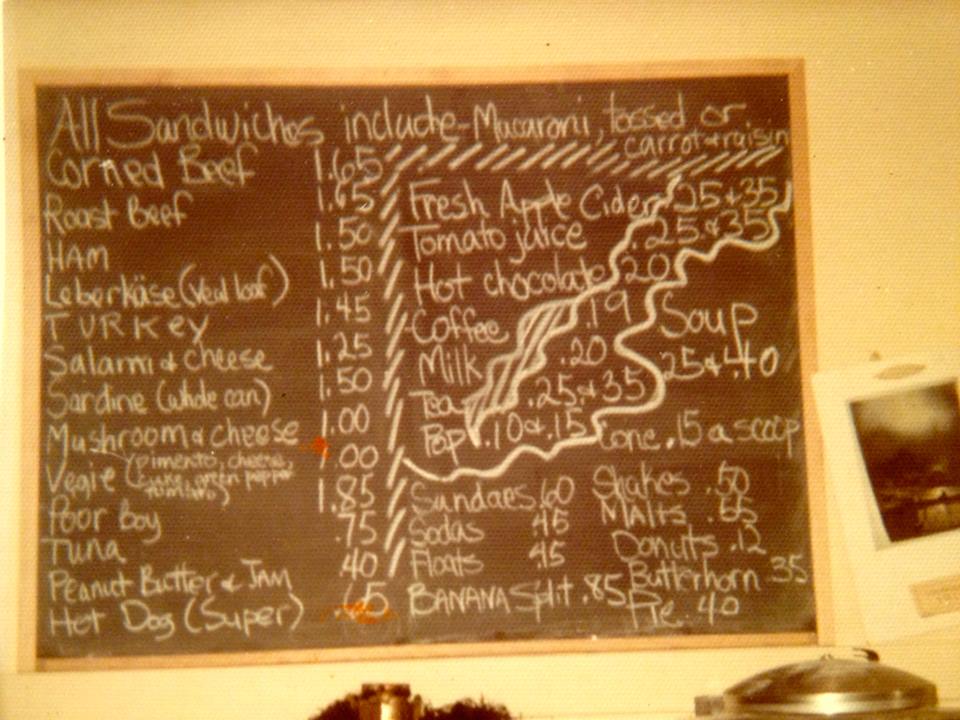 All Sandwiches include-Macaroni, tossed or
carrot & raisin
Corned Beef 1.65
Roast Beef 1.65
HAM 1.50
Leberkäse (Veal loaf) 1.50
TURKEY 1.45
Salami & cheese 1.25
Sardine (whole can) 1.50
Mushroom & cheese 1.00
Vegie (pimento, cheese, .00
cuke, green pepper
tomato)
Poor boy 1.85
Tuna .75
Peanut Butter & JAM .40
Hot Dog (Super) .65
Fresh Apple Cider .25 & 35
Tomato juice .25 & 35
Hot chocolate .20
Coffee .19
Milk .20
Tea .25 & 35
Pop .10 & .15
Soup
25 & .40
Cone .15 a scoop
Sundaes .60
Sodas .45
Floats .45
BANANA Split .85
Shakes .50
MALTs .55
Donuts .12
Butterhorn .35
Pie .40